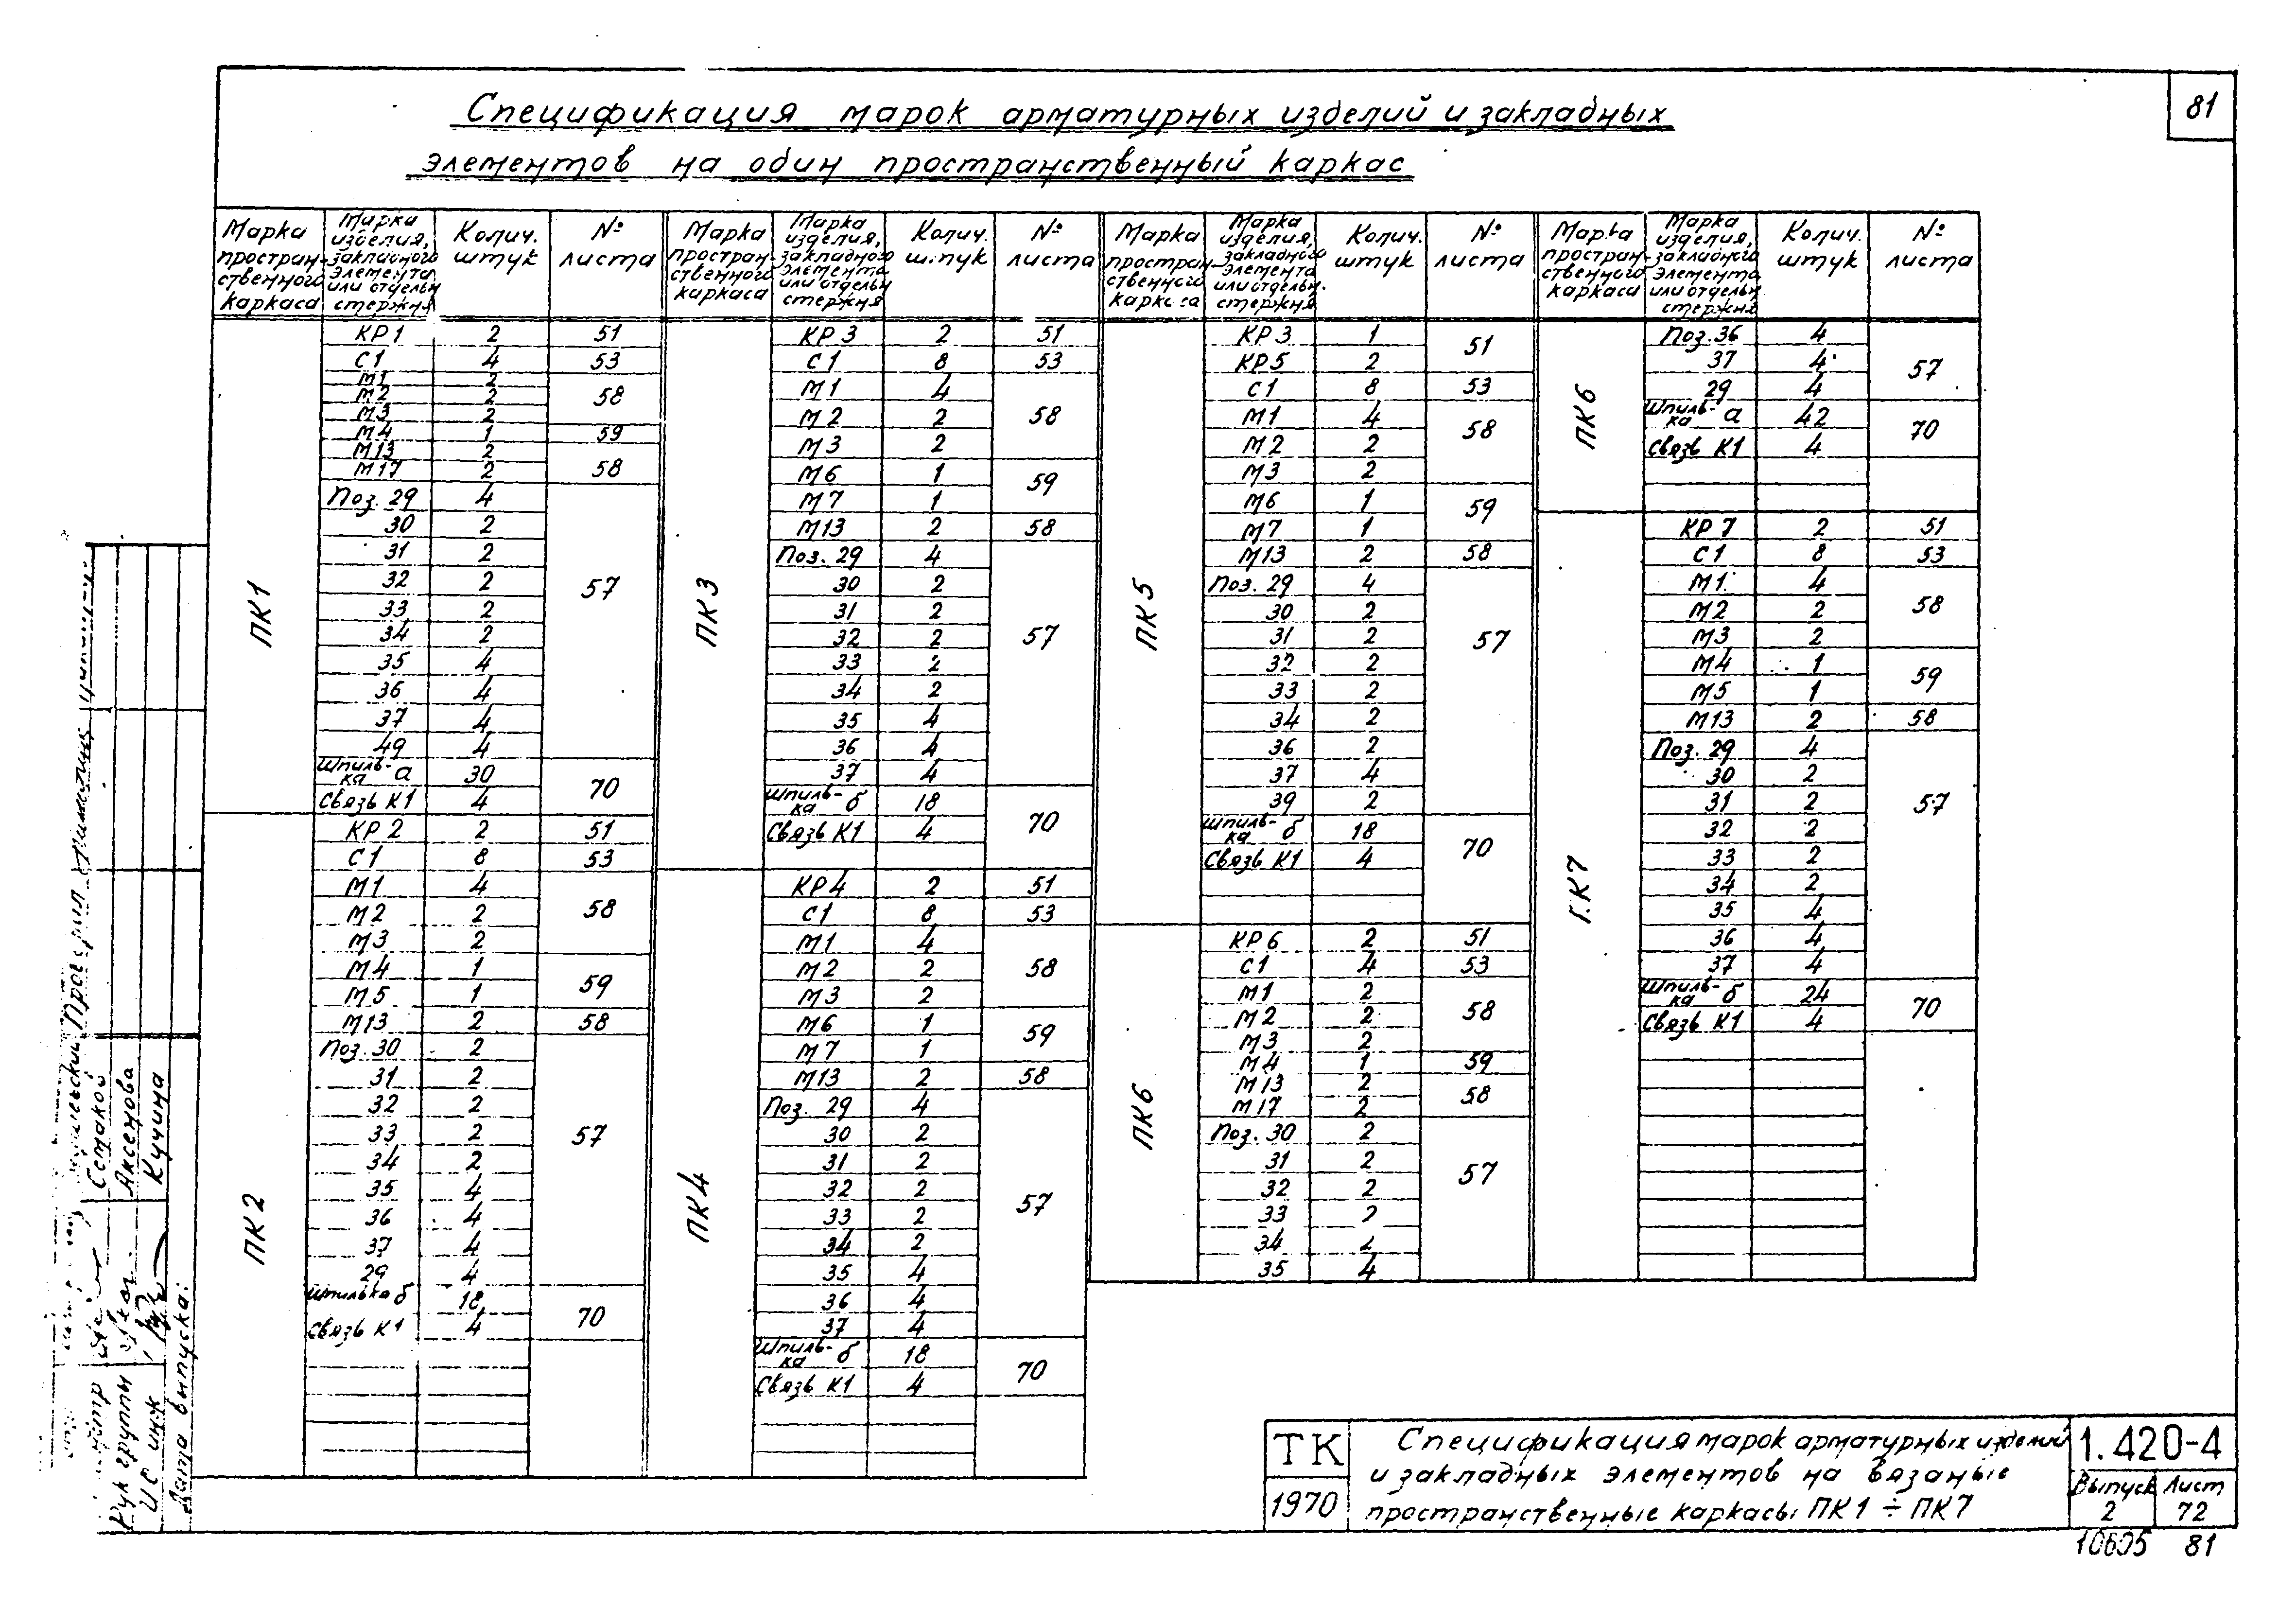 81
Спецификация марок арматурных изделий и закладных
элементов на один пространственный каркас
Марка пространственного каркаса | Марка изделия, закладного элемента или отдельн. стержня | Колич. штук | № листа
ПК1
КР1 2 51
С1 4 53
М1 2 58
М2 2
М3 2
М4 1 59
М13 2 58
М17 2
Поз. 29 4 57
30 2
31 2
32 2
33 2
34 2
35 4
36 4
37 4
49 4
Шпилька а 30 70
Связь К1 4
ПК2
КР2 2 51
С1 8 53
М1 4 58
М2 2
М3 2
М4 1 59
М5 1
М13 2 58
Поз. 30 2 57
31 2
32 2
33 2
34 2
35 4
36 4
37 4
29 4
Шпилька б 18 70
Связь К1 4
Марка пространственного каркаса | Марка изделия, закладного элемента или отдельн стержня | Колич. штук | № листа
ПК3
КР3 2 51
С1 8 53
М1 4 58
М2 2
М3 2
М6 1 59
М7 1
М13 2 58
Поз. 29 4 57
30 2
31 2
32 2
33 2
34 2
35 4
36 4
37 4
Шпилька б 18 70
Связь К1 4
ПК4
КР4 2 51
С1 8 53
М1 4 58
М2 2
М3 2
М6 1 59
М7 1
М13 2 58
Поз. 29 4 57
30 2
31 2
32 2
33 2
34 2
35 4
36 4
37 4
Шпилька б 18 70
Связь К1 4
Марка пространственного каркаса | Марка изделия, закладного элемента или отдельн. стержня | Колич. штук | № листа
ПК5
КР3 1 51
КР5 2
С1 8 53
М1 4 58
М2 2
М3 2
М6 1 59
М7 1
М13 2 58
Поз. 29 4 57
30 2
31 2
32 2
33 2
34 2
36 2
37 4
39 2
Шпилька б 18 70
Связь К1 4
ПК6
КР6 2 51
С1 4 53
М1 2 58
М2 2
М3 2
М4 1 59
М13 2 58
М17 2
Поз. 30 2 57
31 2
32 2
33 2
34 2
35 4
Марка пространственного каркаса | Марка изделия, закладного элемента или отдельн. стержня | Колич. штук | № листа
ПК6
Поз. 36 4 57
37 4
29 4
Шпилька а 42 70
Связь К1 4
ПК7
КР7 2 51
С1 8 53
М1 4 58
М2 2
М3 2
М4 1 59
М5 1
М13 2 58
Поз. 29 4 57
30 2
31 2
32 2
33 2
34 2
35 4
36 4
37 4
Шпилька б 24 70
Связь К1 4
Проверил
Аксенова
Кучина
Рук группы
Дата выпуска:
ТК
1970
Спецификация марок арматурных изделий
и закладных элементов на вязаные
пространственные каркасы ПК1 ÷ ПК7
1.420-4
Выпуск 2
Лист 72
10695 81